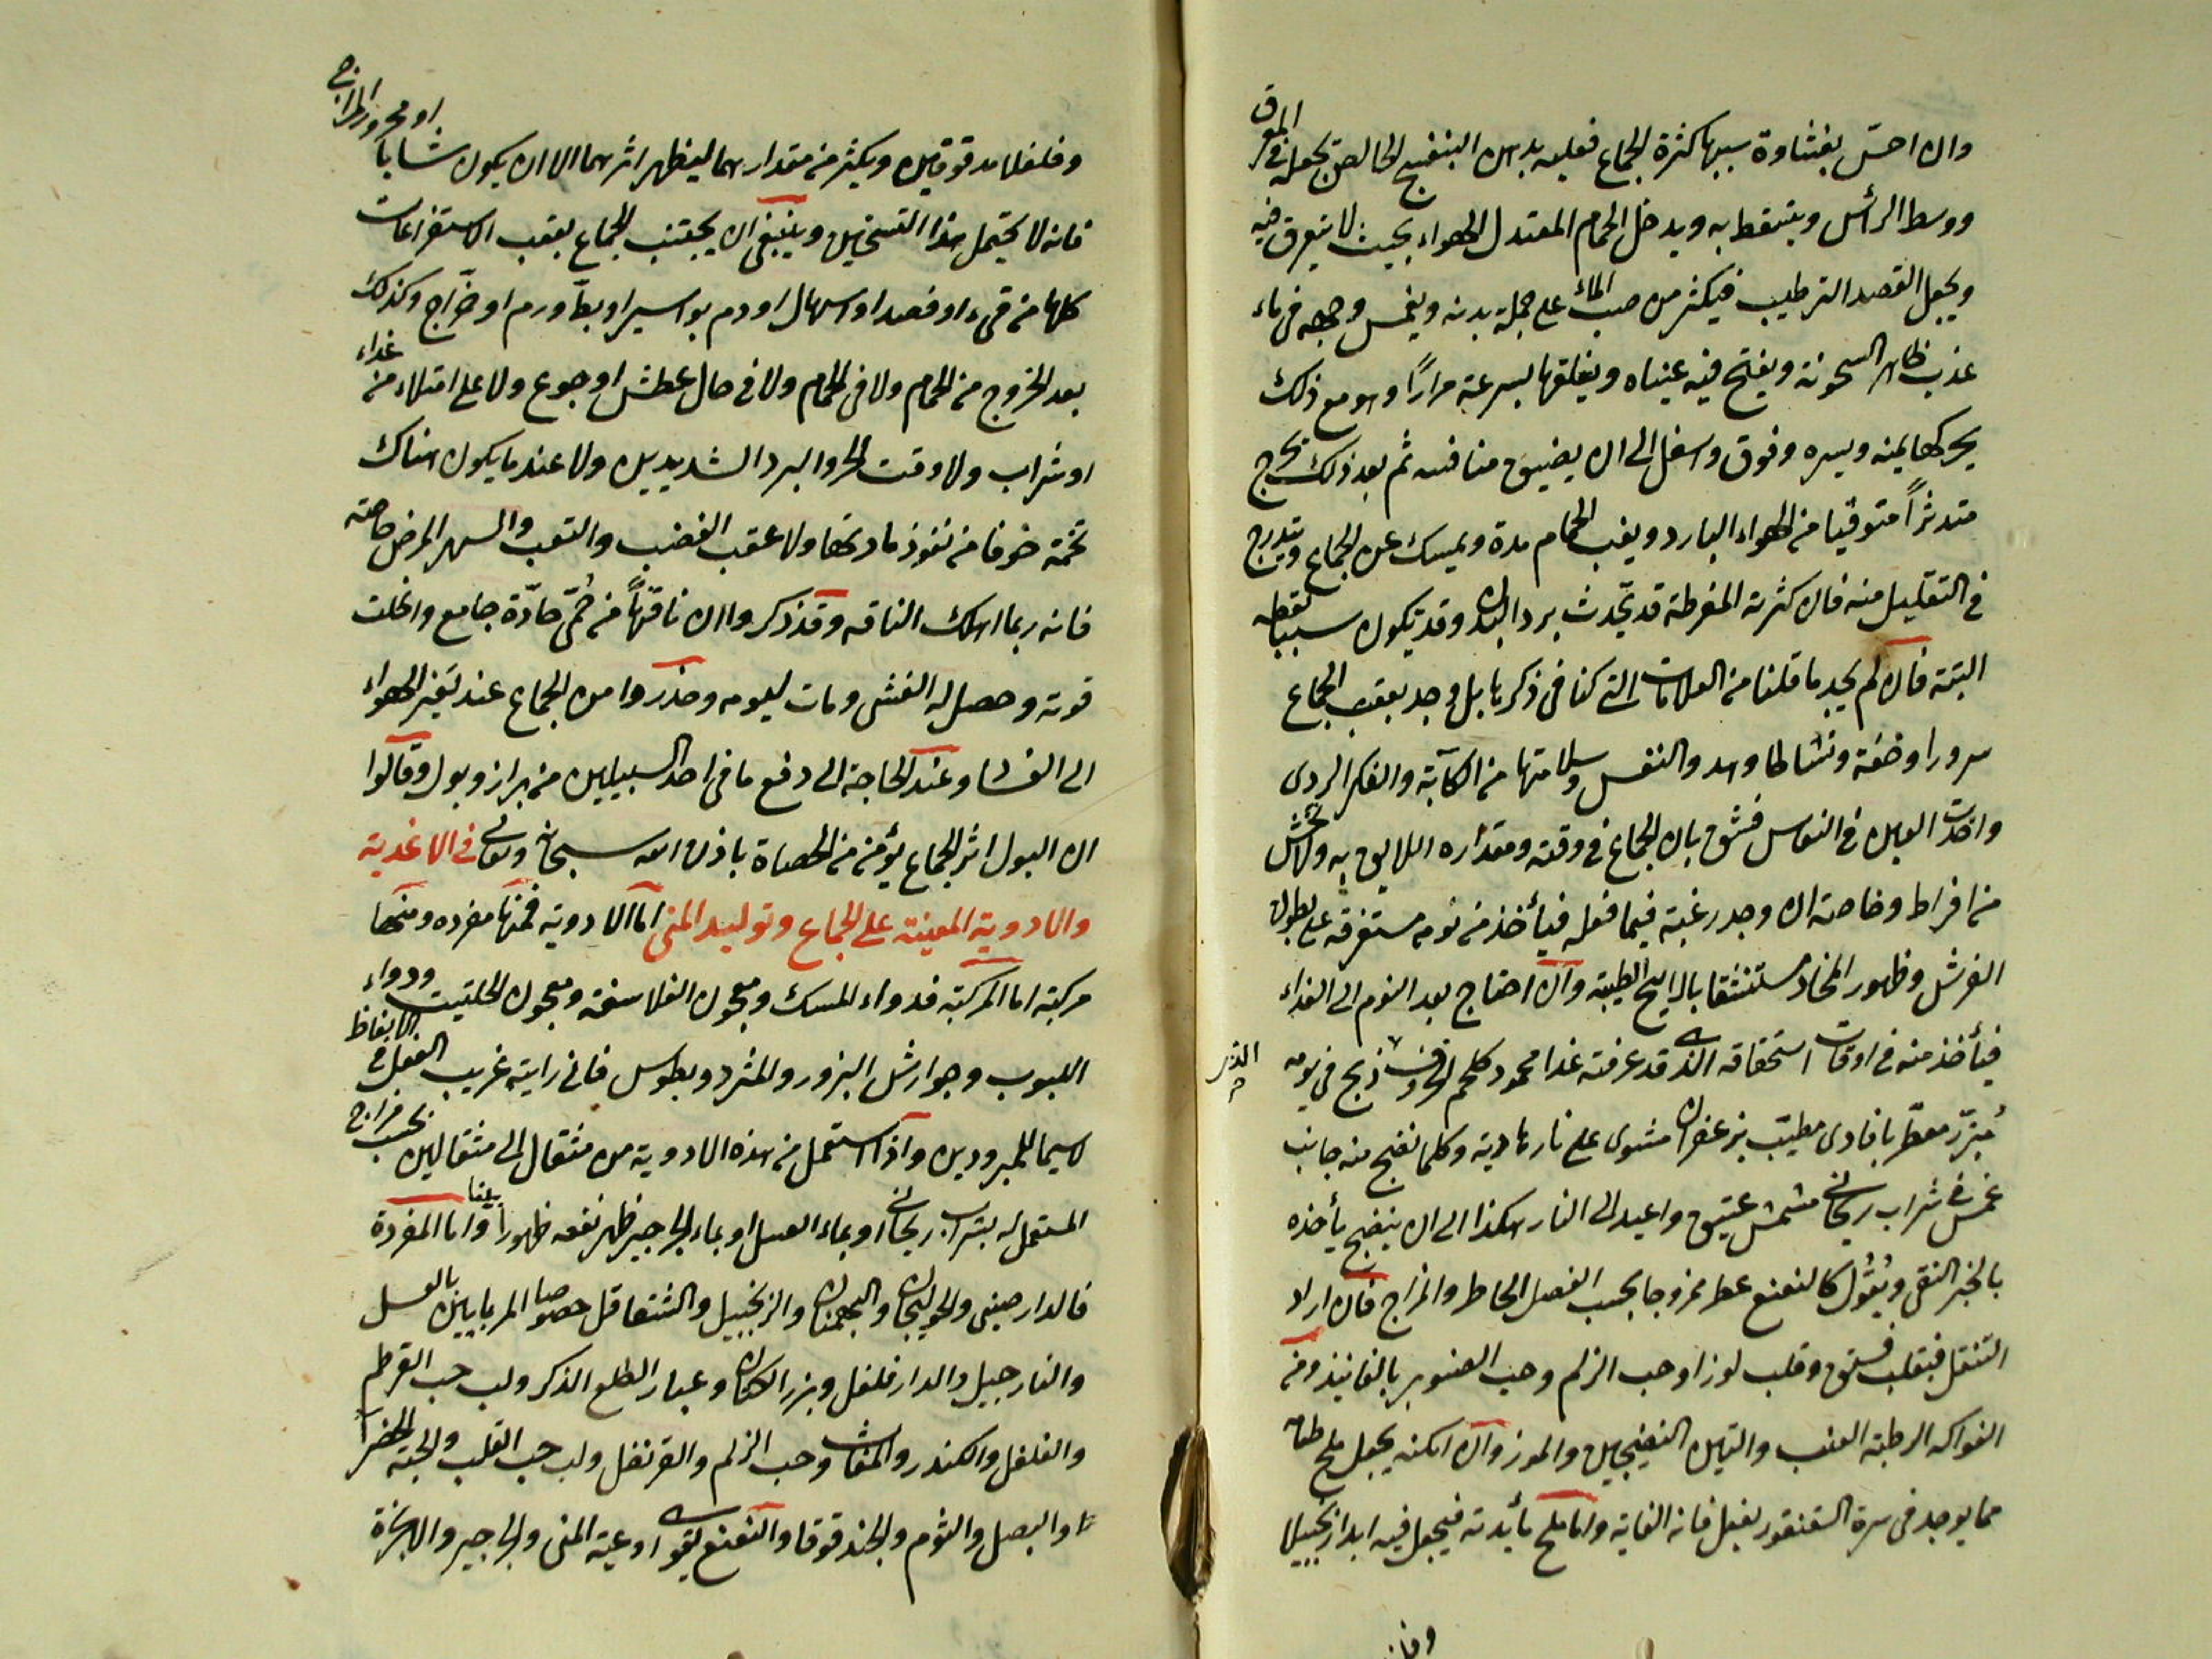 وان احسّ بغشاوة سببها كثرة الجماع فعليه بدهن البنفسج الخالص يجعله في المرق
ووسط الرأس ويتسقط به ويدخل الحمام المعتدل الهواء بحيث لا يتعرق فيه
ويجعل القصد الترطيب فيكثر من صب الماء على جملة بدنه ويغمس وجهه في ماء
عذب ظاهر السخونة ويفتح فيه عيناه ويغلقها بسرعة مرارًا وهو مع ذلك
يحركها يمنه ويسره وفوق واسفل الى ان يضيق منافسه ثم بعد ذلك يخرج
متدثرًا متوقيا من الهواء البارد ويغب الحمام مدة ويمسك عن الجماع ويتدرج
في التقليل منه فان كثرته المفرطة قد تحدث برد البدن وقد تكون سببا لقطعه
البتة فان لم يجد ما قلنا من العلامات التي كنا في ذكرها بل وجد بعقب الجماع
سرورا وخفة ونشاطا وهدو النفس وسلامتها من الكآبة والفكر الردي
واخذت العين في النعاس فثق بان الجماع في وقته ومقداره اللايق به ولا تخش
من افراط وخاصة ان وجد رغبة فيما فعله فيأخذ من نومه مستغرقة على بطون
الفرش وظهور المخاد مستنشقا بالرايح الطيبة وان احتاج بعد النوم الى الغذاء
فيأخذ منه في اوقات استحقاقه الذي قد عرفته غذا محمود كلحم الخروف ذبح في يومه
مُبزّر معطّر بافاوى مطيّب بزعفران مشوى على نار هادية وكلما نضج منه جانب
غمس في شراب ريحاني مشمش عتيق واعيد الى النار هكذا الى ان ينضج يأخذه
بالخبز النقي وبُقُول كالنعنع عطر ممزوجا بحسب الفصل الحاظر والمزاج فان اراد
التنقل فبقلب فستق وقلب لوز او حب الزلم وحب الصنوبر بالفانيذ ومن
الفواكه الرطبة العنب والتين النضيجين والموز وان امكنه يجعل ملح طعامه
مما يوجد في سرة السقنقور يفعل فانه الغاية واما ملح مأيدته فيجعل فيه ابدا زنجبيلا
وفلفلا مدقوقين ويكثر من مقدارهما ليظهر اثرهما الا ان يكون شابا او محرور المزاج
فانه لا يحتمل هذا التسخين وينبغي ان يجتنب الجماع بعقب الاستفراغات
كلها من قيء او فصد او اسهال او دم بواسير او بط ورم او خرّاج وكذلك
بعد الخروج من الحمام ولا في الحمام ولا في حال عطش او جوع ولا على امتلاء من غذاء
او شراب ولا وقت الحر والبرد الشديدين ولا عند ما يكون هناك
تخمة خوفا من نفوذ مادتها ولا عقب الغضب والتعب والسهر والمرض خاصة
فانه ربما اهلك الناقه وقد ذكروا ان ناقهًا من حُمّى حادّة جامع وانحلت
قوته وحصل له الغشى ومات ليومه وحذروا من الجماع عند تغير الهواء
الى الفساد وعند الحاجة الى دفع ما في احد السبيلين من براز وبول وقالوا
ان البول اثر الجماع يؤمن من الحصاة باذن الله سبحانه وتعالى في الاغذية
والادوية المعينة على الجماع وتوليد المنى اما الادوية فمنها مفرده ومنها
مركبة اما المركبة فدواء المسك ومعجون الفلاسفة ومعجون الحلتيت ودواء
اللبوب وجوارش البزور والمثرد ويطوس فاني رايته غريب الفعل في الانعاظ
لاسيما للمبرودين واذا استعمل من هذه الادوية من مثقال الى مثقالين بحسب مزاج
المستعمل له بشراب ريحاني او بماء العسل او بماء الجرجير ظهر نفعه ظهورا بينا واما المفردة
فالدارصيني والخولنجان والبهمنان والزنجبيل والشقاقل خصوصا المربايين بالعسل
والنارجيل والدارفلفل وبزر الكتان وغبار الطلع الذكر ولب حب القرطم
والفلفل والكندر والمغاث وحب الزلم والقرنفل ولب حب القلب والحبة الخضرا
والبصل والثوم والحندقوقا والنعنع يقوى اوعية المنى والجرجير والانجرة